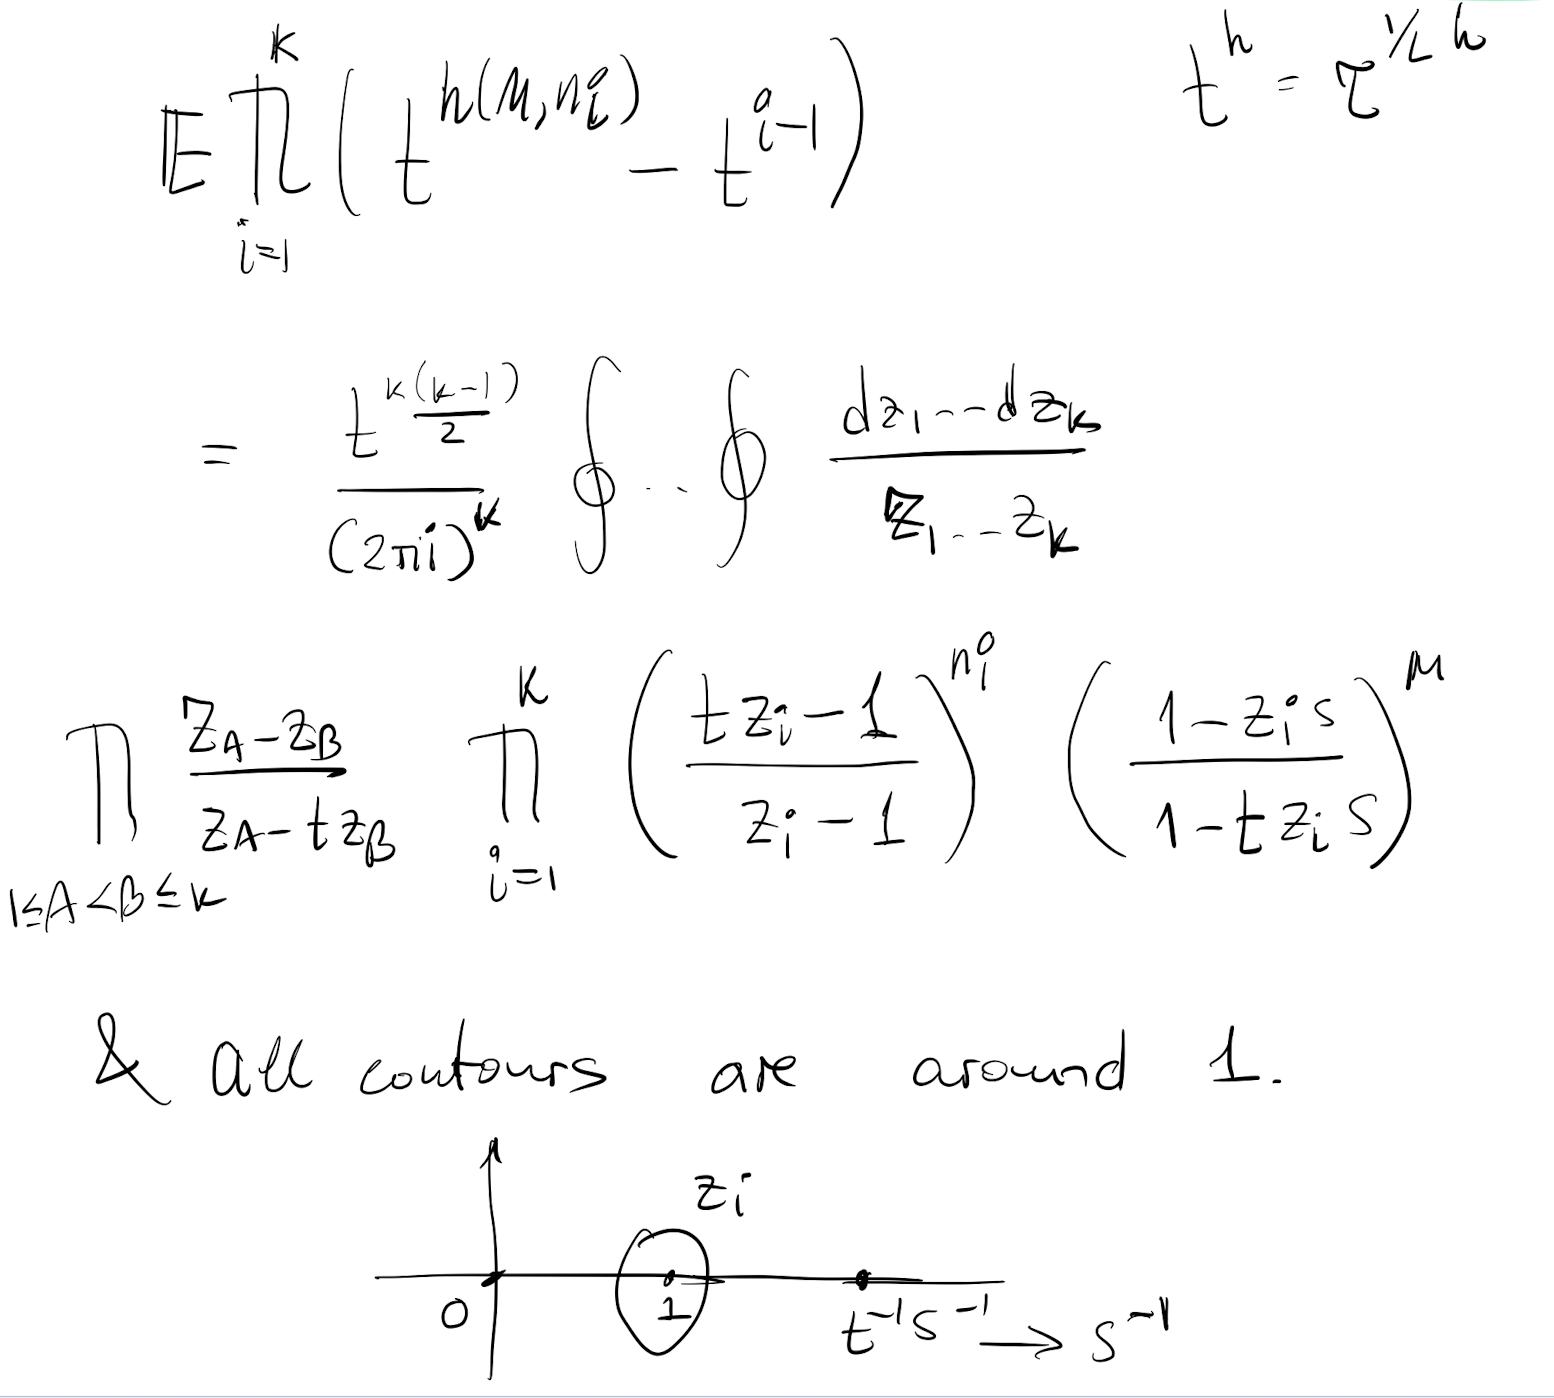 𝔼 ∏_{i=1}^{k} ( t^{h(M,n_i)} − t^{i−1} )    t^h = τ^{1/L h}
= \frac{t^{\frac{k(k−1)}{2}}}{(2πi)^k} ∮ .. ∮ \frac{dz_1 ... dz_k}{z_1 ... z_k}
∏_{1≤A<B≤k} \frac{z_A − z_B}{z_A − t z_B} ∏_{i=1}^{k} ( \frac{t z_i − 1}{z_i − 1} )^{n_i} ( \frac{1 − z_i s}{1 − t z_i s} )^M
& all contours are around 1.
z_i
0 1 t^{−1}s^{−1} → s^{−1}